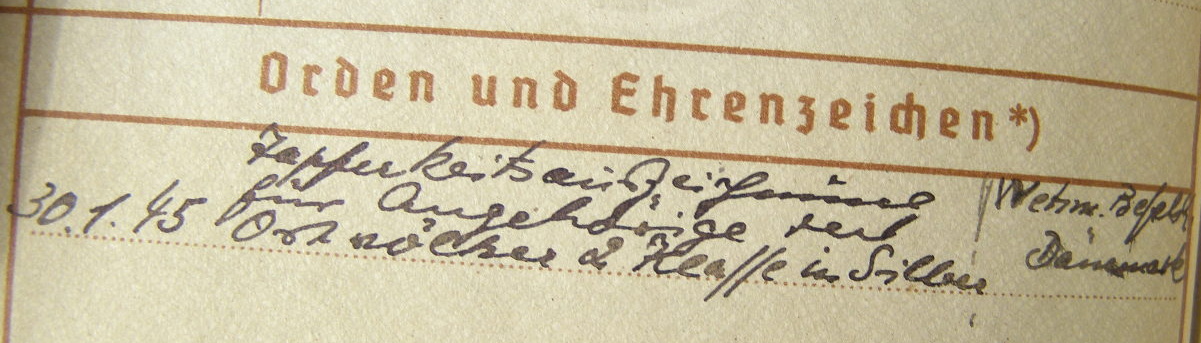 Orden und Ehrenzeichen*)
Tapferkeitsauszeichnung Wehrm. Befehlsh.
30.1.45 für Angehörige der Dänemark
Ostvölker 2 Klasse in Silber